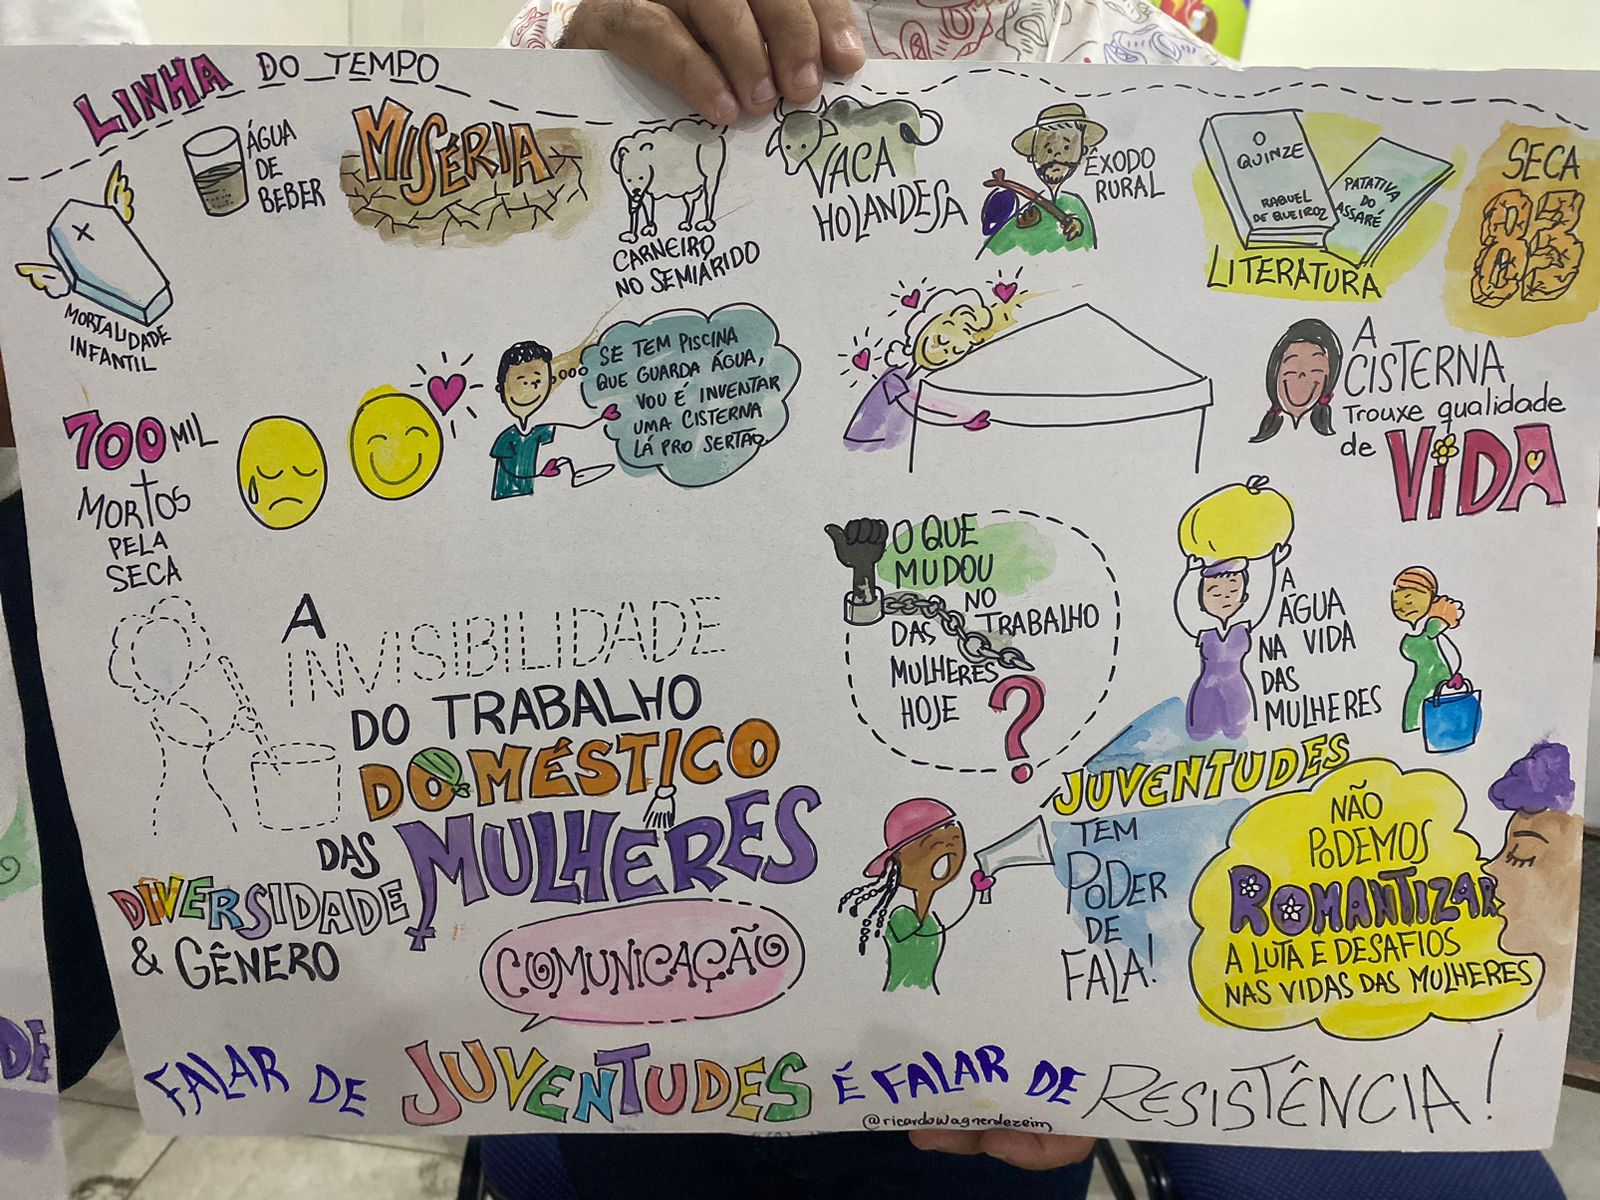 LINHA DO TEMPO
ÁGUA
DE
BEBER
MISÉRIA
CARNEIRO
NO SEMIÁRIDO
VACA
HOLANDESA
ÊXODO
RURAL
O
QUINZE
RAQUEL
DE QUEIROZ
PATATIVA
DO
ASSARÉ
LITERATURA
SECA
83
MORTALIDADE
INFANTIL
700 MIL
MORTOS
PELA
SECA
SE TEM PISCINA
QUE GUARDA ÁGUA,
VOU É INVENTAR
UMA CISTERNA
LÁ PRO SERTÃO
A
CISTERNA
Trouxe qualidade
de VIDA
O QUE
MUDOU
NO
TRABALHO
DAS
MULHERES
HOJE ?
A
ÁGUA
NA VIDA
DAS
MULHERES
A
INVISIBILIDADE
DO TRABALHO
DOMÉSTICO
DAS MULHERES
DIVERSIDADE
& GÊNERO
COMUNICAÇÃO
JUVENTUDES
TEM
PODER
DE
FALA!
NÃO
PODEMOS
ROMANTIZAR
A LUTA E DESAFIOS
NAS VIDAS DAS MULHERES
FALAR DE JUVENTUDES É FALAR DE RESISTÊNCIA!
@ricardowagnerdezeim
DE